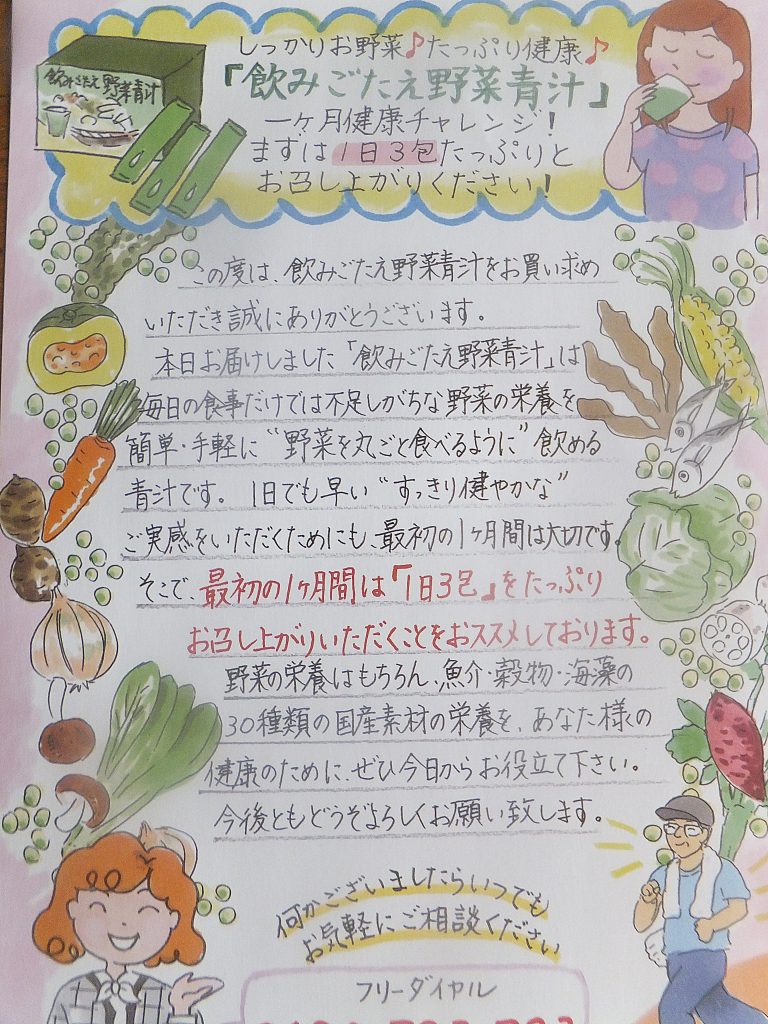 しっかりお野菜♪たっぷり健康♪
「飲みごたえ野菜青汁」
一ヶ月健康チャレンジ!
まずは1日3包たっぷりと
お召し上がりください!
飲みごたえ野菜青汁
この度は、飲みごたえ野菜青汁をお買い求め
いただき誠にありがとうございます。
本日お届けしました「飲みごたえ野菜青汁」は
毎日の食事だけでは不足しがちな野菜の栄養を
簡単・手軽に“野菜を丸ごと食べるように”飲める
青汁です。 1日でも早い“すっきり健やかな”
ご実感をいただくためにも、最初の1ヶ月間は大切です。
そこで、最初の1ヶ月間は「1日3包」をたっぷり
お召し上がりいただくことをおススメしております。
野菜の栄養はもちろん、魚介・穀物・海藻の
30種類の国産素材の栄養を、あなた様の
健康のために、ぜひ今日からお役立て下さい。
今後ともどうぞよろしくお願い致します。
何かございましたらいつでも
お気軽にご相談ください
フリーダイヤル